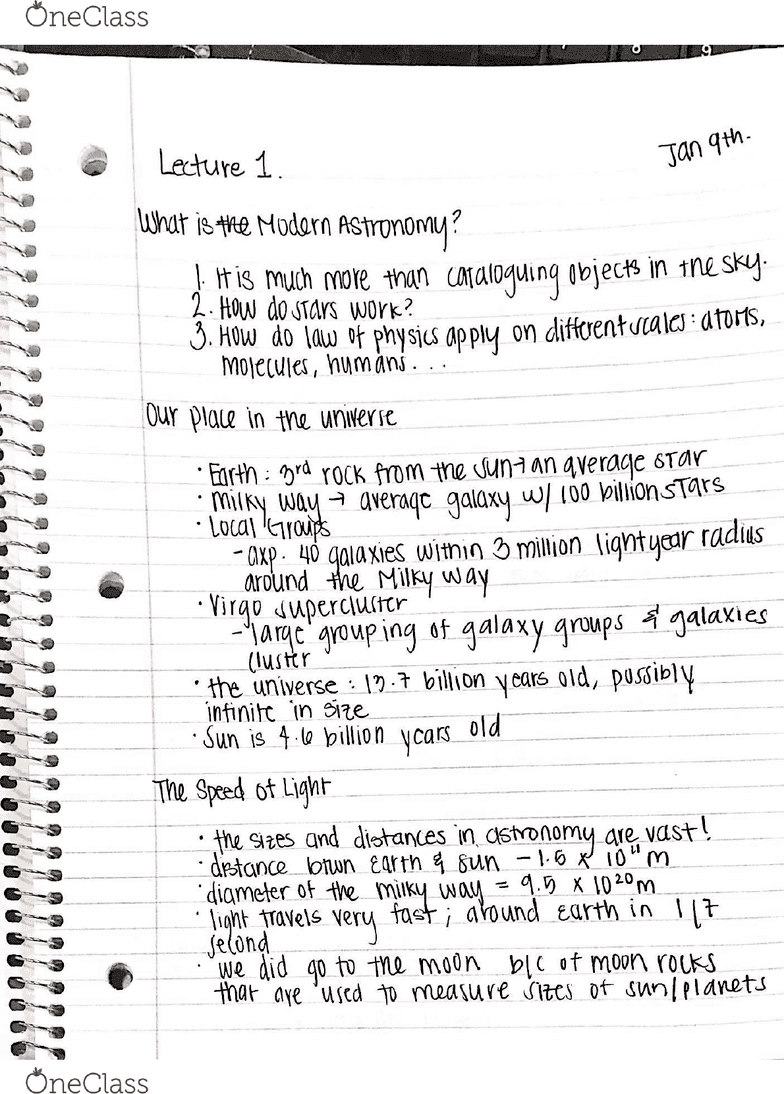 OneClass
8 9
Lecture 1.
Jan 9th.
What is the Modern Astronomy?
1. It is much more than cataloguing objects in the sky.
2. How do stars work?
3. How do law of physics apply on different scales: atoms,
molecules, humans...
Our place in the universe
• Earth: 3rd rock from the sun → an average star
• Milky way → average galaxy w/ 100 billion stars
• Local Groups
- axp. 40 galaxies within 3 million light year radius
around the Milky Way
• Virgo supercluster
- large grouping of galaxy groups & galaxies
cluster
• the universe: 13.7 billion years old, possibly
infinite in size
• Sun is 4.6 billion years old
The Speed of Light
• the sizes and distances in astronomy are vast!
• distance btwn Earth & sun - 1.5 x 10¹¹ m
• diameter of the milky way = 9.5 x 10²⁰ m
• light travels very fast; around Earth in 1/7
second
• we did go to the moon b/c of moon rocks
that are used to measure sizes of sun/planets
OneClass